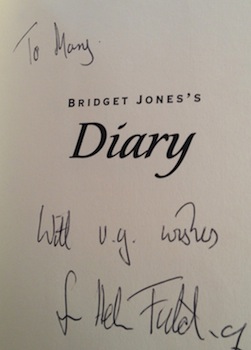 To Mary
BRIDGET JONES'S
Diary
With v.g. wishes
Helen Fielding